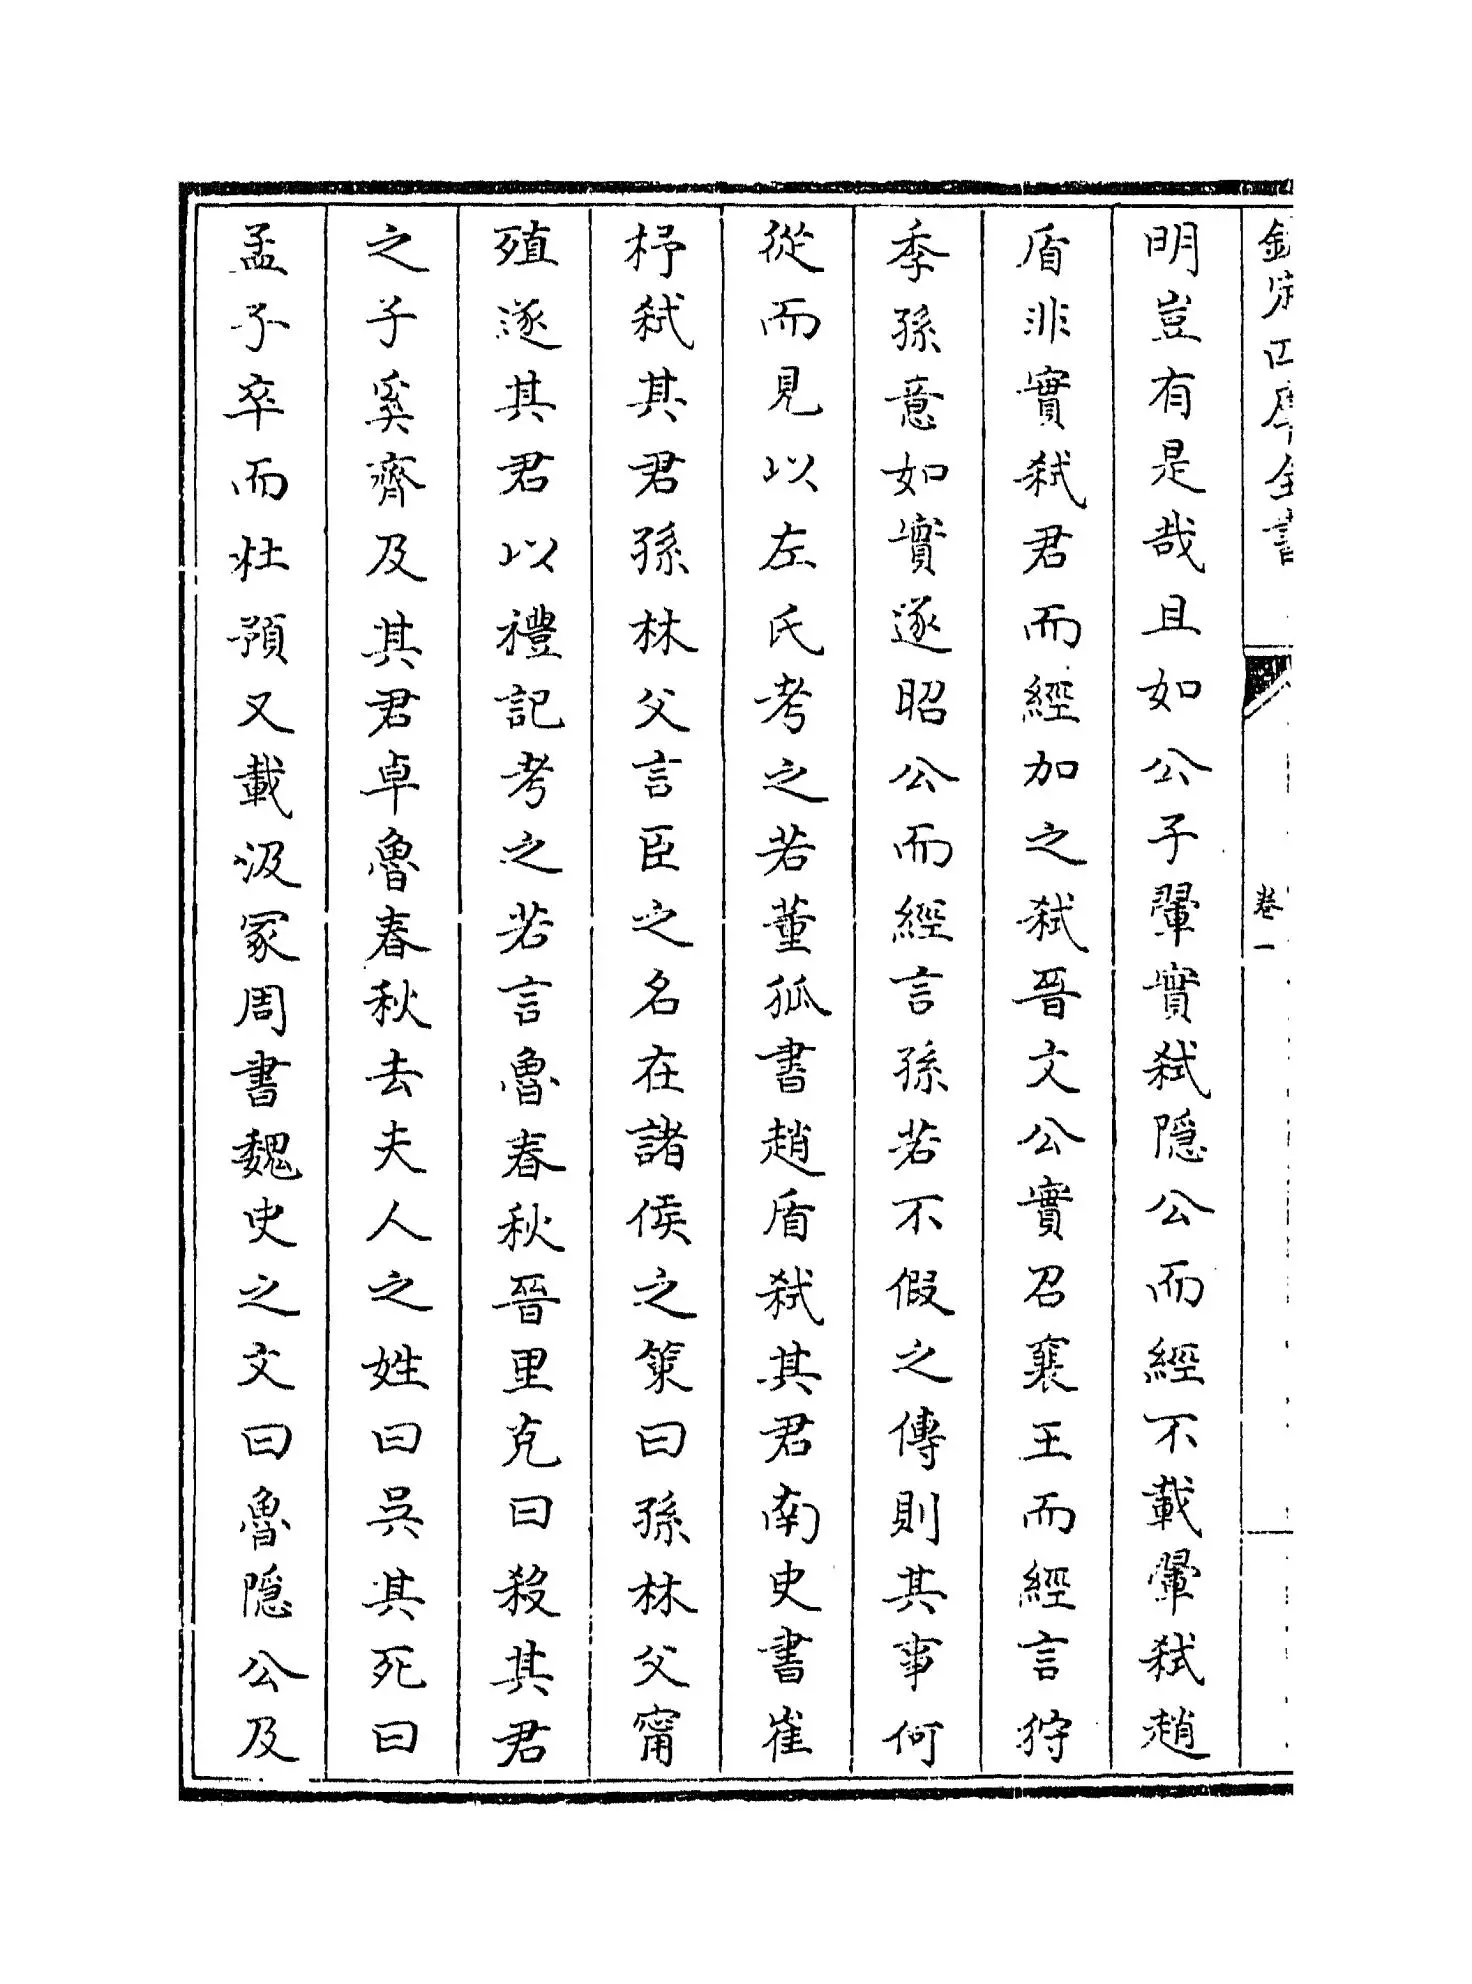 欽定四庫全書
卷一
明豈有是哉且如公子翬實弑隠公而經不載翬弑趙
盾非實弑君而經加之弑晉文公實召襄王而經言狩
季孫意如實逐昭公而經言孫若不假之傳則其事何
從而見以左氏考之若董狐書趙盾弑其君南史書崔
杼弑其君孫林父言臣之名在諸侯之策曰孫林父甯
殖逐其君以禮記考之若言魯春秋晉里克曰殺其君
之子奚齊及其君卓魯春秋去夫人之姓曰吳其死曰
孟子卒而杜預又載汲冢周書魏史之文曰魯隠公及